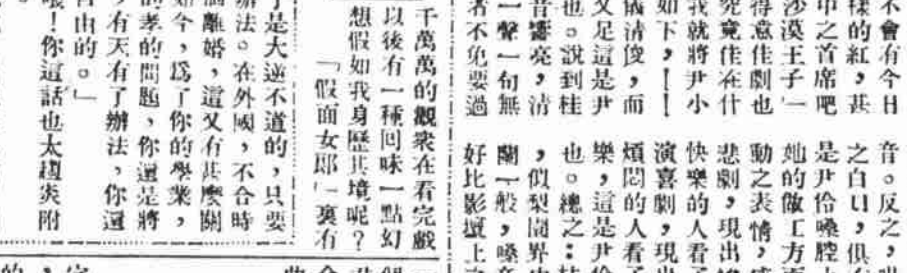 不會有今日
樣的紅，甚
巾之首席吧
沙漠王子一
得意佳劇也
究竟佳在什
我就將尹小
如下，——
儀清俊，而
又足這是尹
也。說到桂
音響亮，清
一聲一句無
者不免要過
音。反之，
之白口，俱
是尹伶嗓腔
她的做工方
動之表情，
悲劇，現出
快樂的人看
演喜劇，現出
煩悶的人看了
樂，這是尹伶
也。總之：
，似梨園界
闌一般，嗓音
好比影壇上之
千萬萬的觀衆在看完戲
以後有一種回味一點幻
想假如我身歷其境呢？
「假面女郎」裏有
于是大逆不道的，只要
辦法。在外國，不合時
離婚，這又有甚麼關
如今，爲了你的學業，
的孝的問題，你還是將
有天有了辦法，你還
自由的。」
哦！你這話也太趨炎附